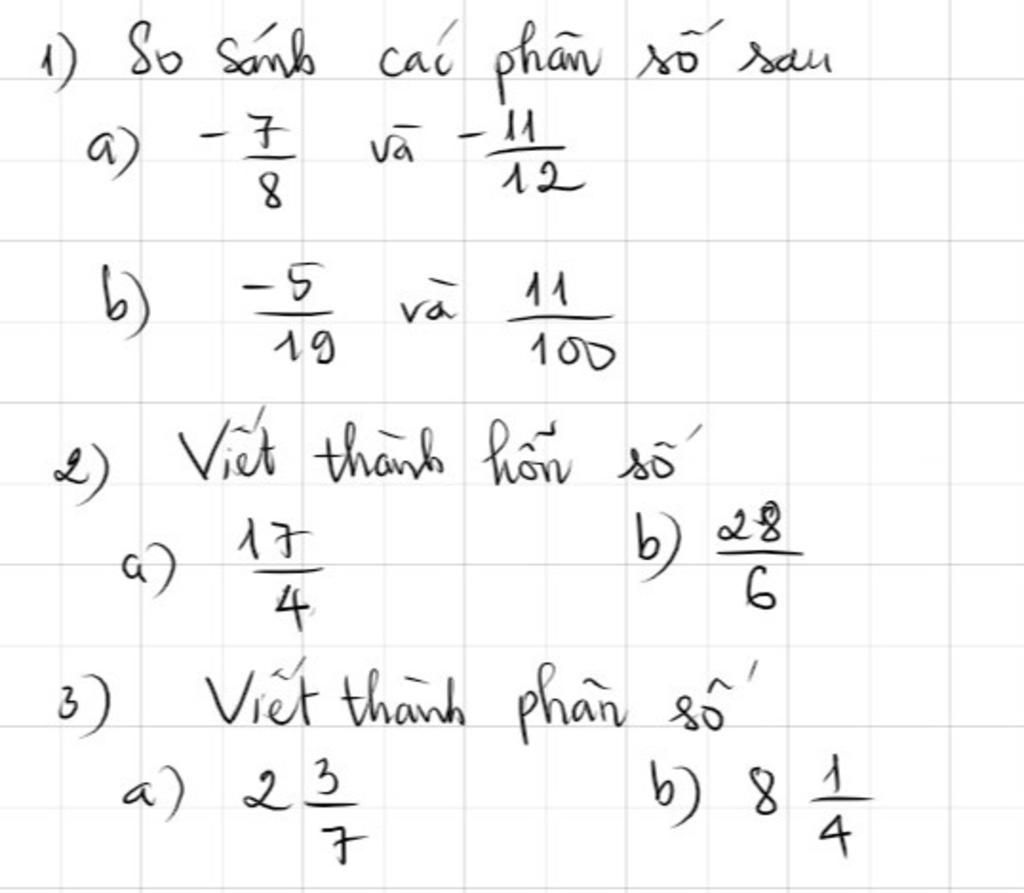 1) So sánh các phân số sau
a) -7/8 và -11/12
b) -5/19 và 11/100
2) Viết thành hỗn số
a) 17/4 b) 28/6
3) Viết thành phân số
a) 2 3/7 b) 8 1/4